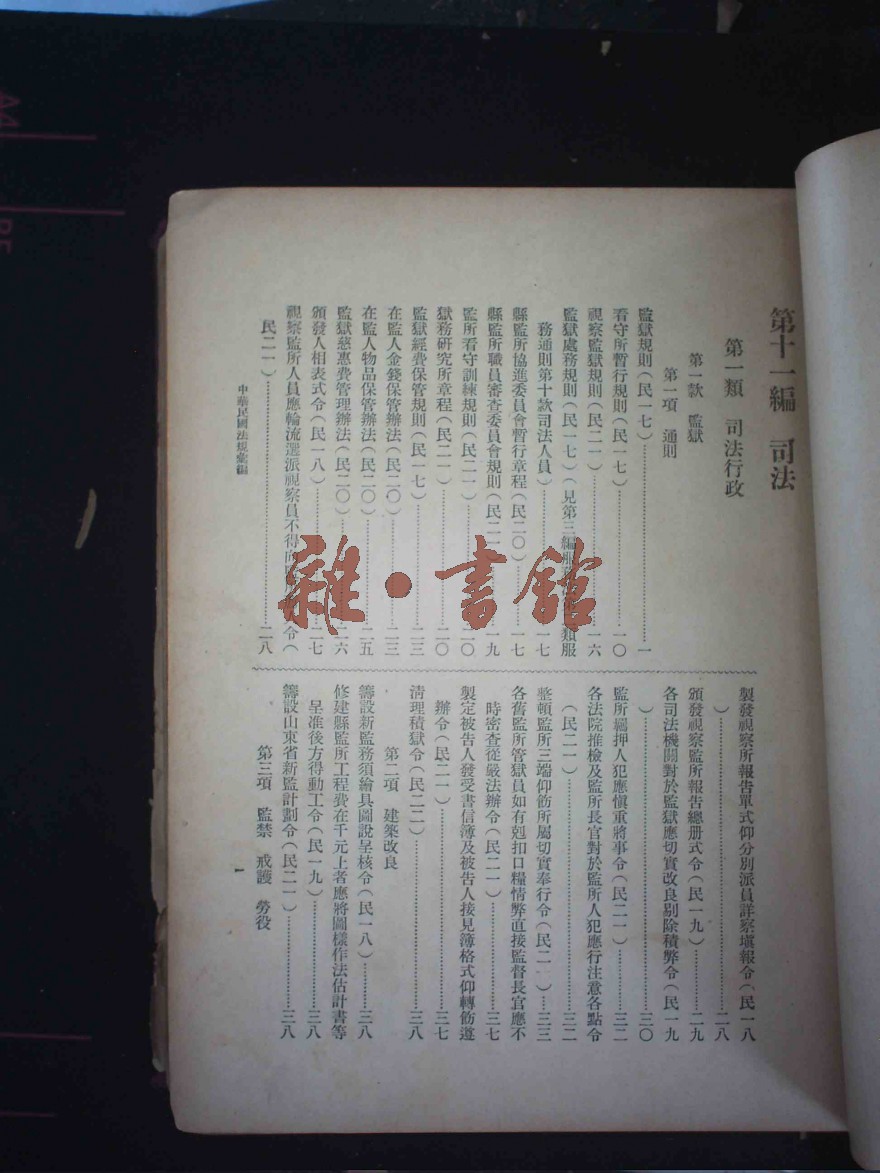 第十一編　司法
第一類　司法行政
第一款　監獄
第一項　通則
監獄規則（民一七）……一
看守所暫行規則（民一七）……一〇
視察監獄規則（民二一）……一六
監獄處務規則（民一七）（見第三編 類服
務通則第十款司法人員）……一七
縣監所協進委員會暫行章程（民二〇）……一七
縣監所職員審查委員會規則（民二一 一九
監所看守訓練規則（民二一）……二〇
獄務研究所章程（民二一）……二〇
監獄經費保管規則（民一七）……二三
在監人金錢保管辦法（民二〇）……二三
在監人物品保管辦法（民二〇）……二五
監獄慈惠費管理辦法（民二〇）……二六
頒發人相表式令（民一八）……二七
視察監所人員應輪流選派視察員不得向 令（
民二一）……二八
製發視察所報告單式仰分別派員詳察塡報令（民一八
）……二八
頒發視察監所報告總册式令（民一九）……二九
各司法機關對於監獄應切實改良剔除積弊令（民一九
）……三〇
監所羈押人犯應愼重將事令（民二一）……三二
各法院推檢及監所長官對於監所人犯應行注意各點令
（民二一）……三二
整頓監所三端仰飭所屬切實奉行令（民二一）…三三
各舊監所管獄員如有剋扣口糧情弊直接監督長官應不
時密查從嚴法辦令（民二一）……三七
製定被告人發受書信簿及被告人接見簿格式仰轉飭遵
辦令（民二一）……三七
淸理積獄令（民二二）……三八
第二項　建築改良
籌設新監務須繪具圖說呈核令（民一八）……三八
修建縣監所工程費在千元上者應將圖樣作法估計書等
呈准後方得動工令（民一九）……三八
籌設山東省新監計劃令（民二一）……三八
第三項　監禁　戒護　勞役
中華民國法規彙編
一
雜·書館
A4